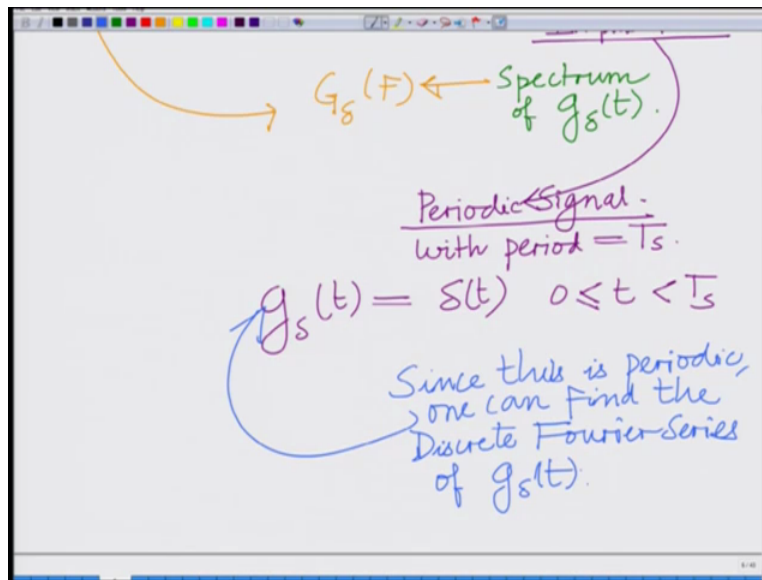 G_δ(F) ← Spectrum
of g_δ(t).
Periodic Signal.
with period = Ts.
g_δ(t) = δ(t) 0 ≤ t < Ts
Since this is periodic,
one can find the
Discrete Fourier Series
of g_δ(t).